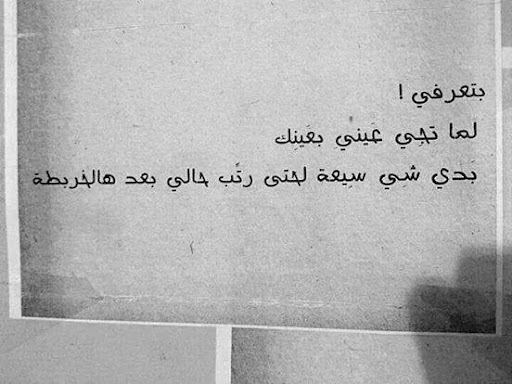 بتعرفي !
لما تجي عَيني بعَينِك
بَدي شي سيعة لحتى رتّب حالي بعد هالخربطة